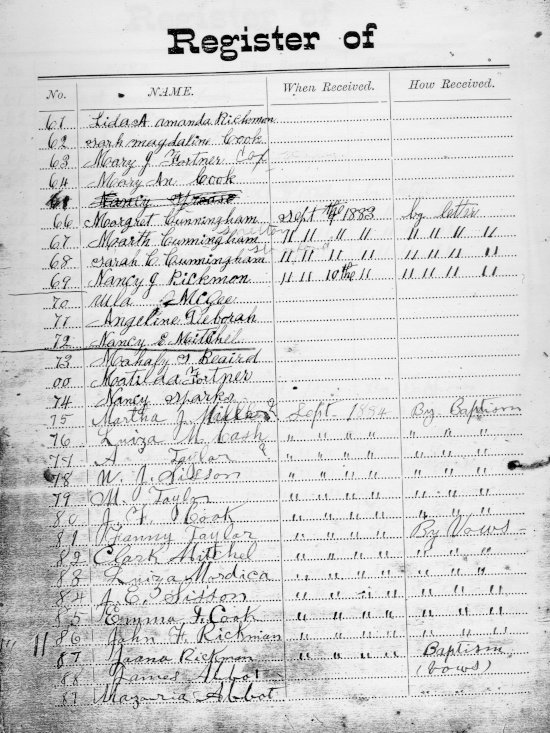 Register of
No. NAME. When Received. How Received.
61 Lida A amanda Rickmon
62 Sarh magdaline Cook
63 Mary J Fortner Cox
64 Mary An Cook
65 Nancy
66 Margret Cunningham Sept the 1883 by letter
67 Marth Cunningham " " " " " " " "
68 Sarah C. Cunningham " " " " " " " "
69 Nancy J Rickmon " " 10the " " " " "
70 Ula McGee
71 Angeline Deborah
72 Nancy E Mitchel
73 Mahaly J Beaird
00 Matilda Fortner
74 Nancy Sparks
75 Martha J. Miller Sept. 1884 By Baptism
76 Luiza M Cash " " " " " " "
77 A Taylor " " " " " " "
78 W. J. Sisson " " " " " " "
79 M. Taylor " " " " " " "
80 J. F. Cook " " " " " " "
81 Fanny Taylor " " " " By Vows
82 Clark Mitchel " " " " " " "
83 Luiza Mordica " " " " " " "
84 J. E. Sisson " " " " " " "
85 Emma J. Cook " " " " " " "
11 86 John F. Rickman " " " " " " "
87 Rickman " " " " Baptism
88 James Abbot " " " " (vows)
89 Mazuria Abbot " " " "